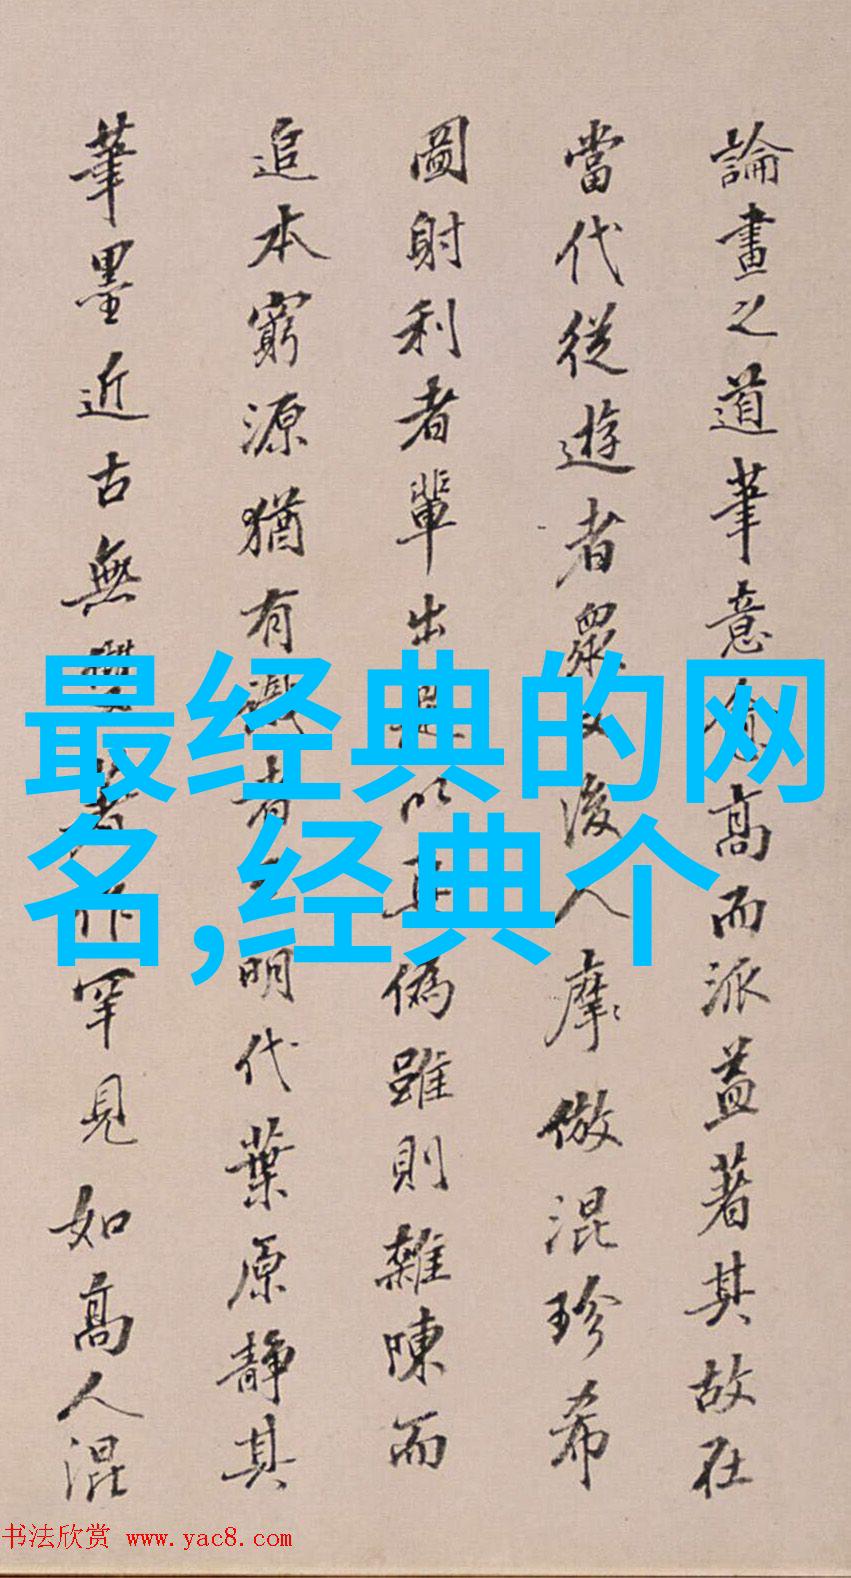 論畫之道筆意愈高而派益著其故在
當代從遊者眾又後人摩倣混珍希
圖射利者輩出是以真偽雖則雜陳而
追本窮源猶有識者明代葉原靜其
筆墨近古無雙者作罕見如高人混
最经典的网
名,经典个
书法欣赏 www.yac8.com